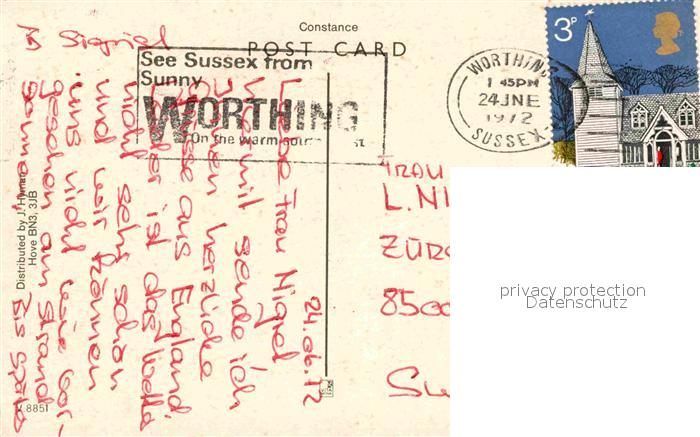 Constance
POST CARD
3P
See Sussex from
Sunny
WORTHING
On the warm
WORTHING
1 45PM
24 JNE
1972
SUSSEX
24.06.72
Liebe Frau Nigel
Hiermit sende ich
Ihnen herzliche
Grüsse aus England
Leider ist das Wetter
nicht sehr schön
und wir können
uns nicht wie vor-
gesehen am Strand
sonnen. Bis später
Sigrid
FRAU
L. NI
ZÜR
85
SW
Distributed by J. Hyman
Hove BN3, 3JB
V 8851
privacy protection
Datenschutz